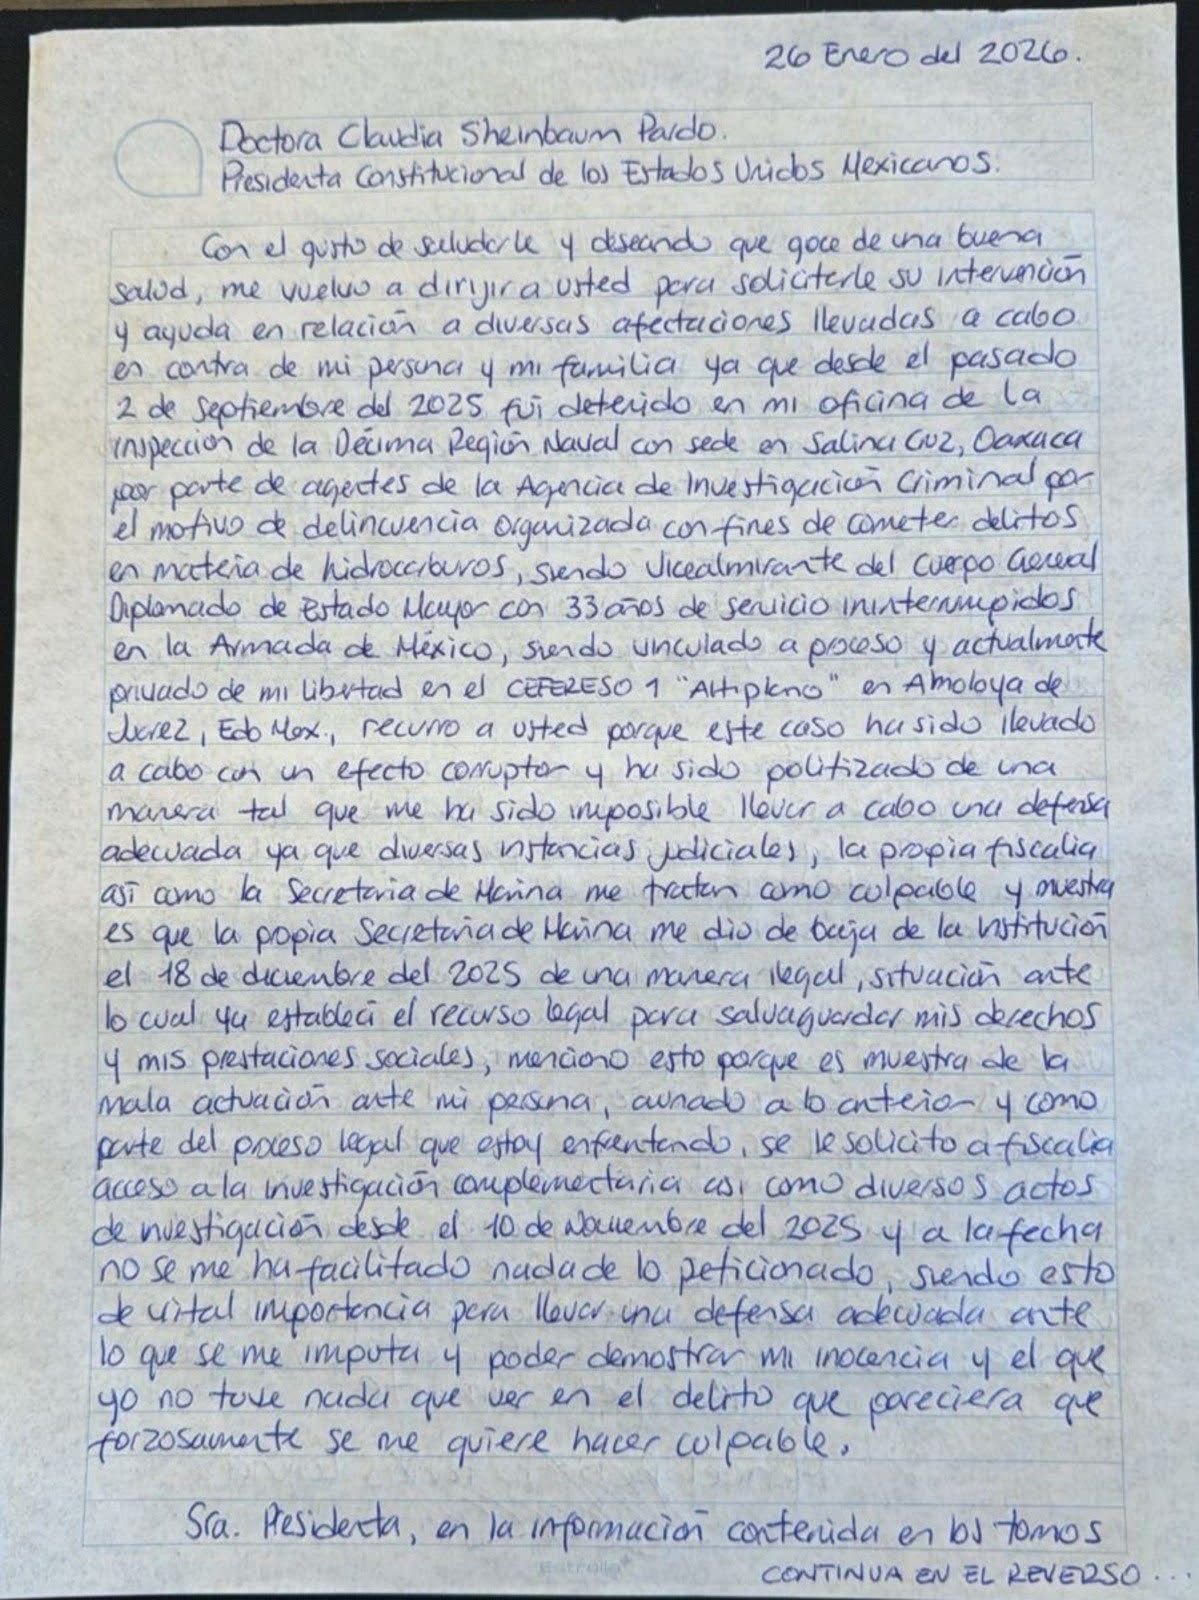 26 Enero del 2026.
Doctora Claudia Sheinbaum Pardo.
Presidenta Constitucional de los Estados Unidos Mexicanos.
Con el gusto de saludarle y deseando que goce de una buena
salud, me vuelvo a dirijir a usted para solicitarle su intervención
y ayuda en relación a diversas afectaciones llevadas a cabo
en contra de mi persona y mi familia ya que desde el pasado
2 de Septiembre del 2025 fui detenido en mi oficina de la
inspección de la Décima Región Naval con sede en Salina Cruz, Oaxaca
por parte de agentes de la Agencia de Investigación Criminal por
el motivo de delincuencia organizada con fines de cometer delitos
en materia de hidrocarburos, siendo Vicealmirante del Cuerpo General
Diplomado de Estado Mayor con 33 años de servicio ininterrumpidos
en la Armada de México, siendo vinculado a proceso y actualmente
privado de mi libertad en el CEFERESO 1 "Altiplano" en Almoloya de
Juárez, Edo Mex., recurro a usted porque este caso ha sido llevado
a cabo con un efecto corruptor y ha sido politizado de una
manera tal que me ha sido imposible llevar a cabo una defensa
adecuada ya que diversas instancias judiciales, la propia fiscalia
así como la Secretaria de Marina me tratan como culpable y muestra
es que la propia Secretaria de Marina me dio de baja de la institución
el 18 de diciembre del 2025 de una manera ilegal, situación ante
lo cual ya establecí el recurso legal para salvaguardar mis derechos
y mis prestaciones sociales, menciono esto porque es muestra de la
mala actuación ante mi persona, aunado a lo anterior y como
parte del proceso legal que estoy enfrentando, se le solicito a fiscalia
acceso a la investigación complementaria así como diversos actos
de investigación desde el 10 de Noviembre del 2025 y a la fecha
no se me ha facilitado nada de lo peticionado, siendo esto
de vital importancia para llevar una defensa adecuada ante
lo que se me imputa y poder demostrar mi inocencia y el que
yo no tuve nada que ver en el delito que pareciera que
forzosamente se me quiere hacer culpable.
Sra. Presidenta, en la información contenida en los tomos
Estrella
CONTINUA EN EL REVERSO...